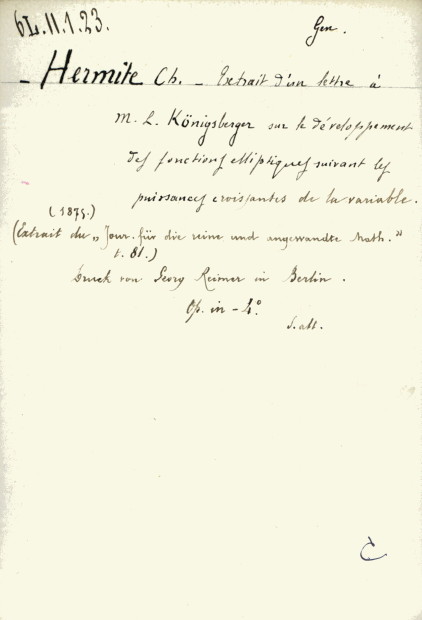 6L.II.1.23.
Gen.
- Hermite Ch. - Extrait d'un lettre à
M. L. Königsberger sur le développement
des fonctions elliptiques suivant les
puissances croissantes de la variable.
(1875.)
(Extrait du „Jour. für die reine und angewandte Math."
t. 81.)
Druck von Georg Reimer in Berlin.
Op. in - 4°.
S. att.
C